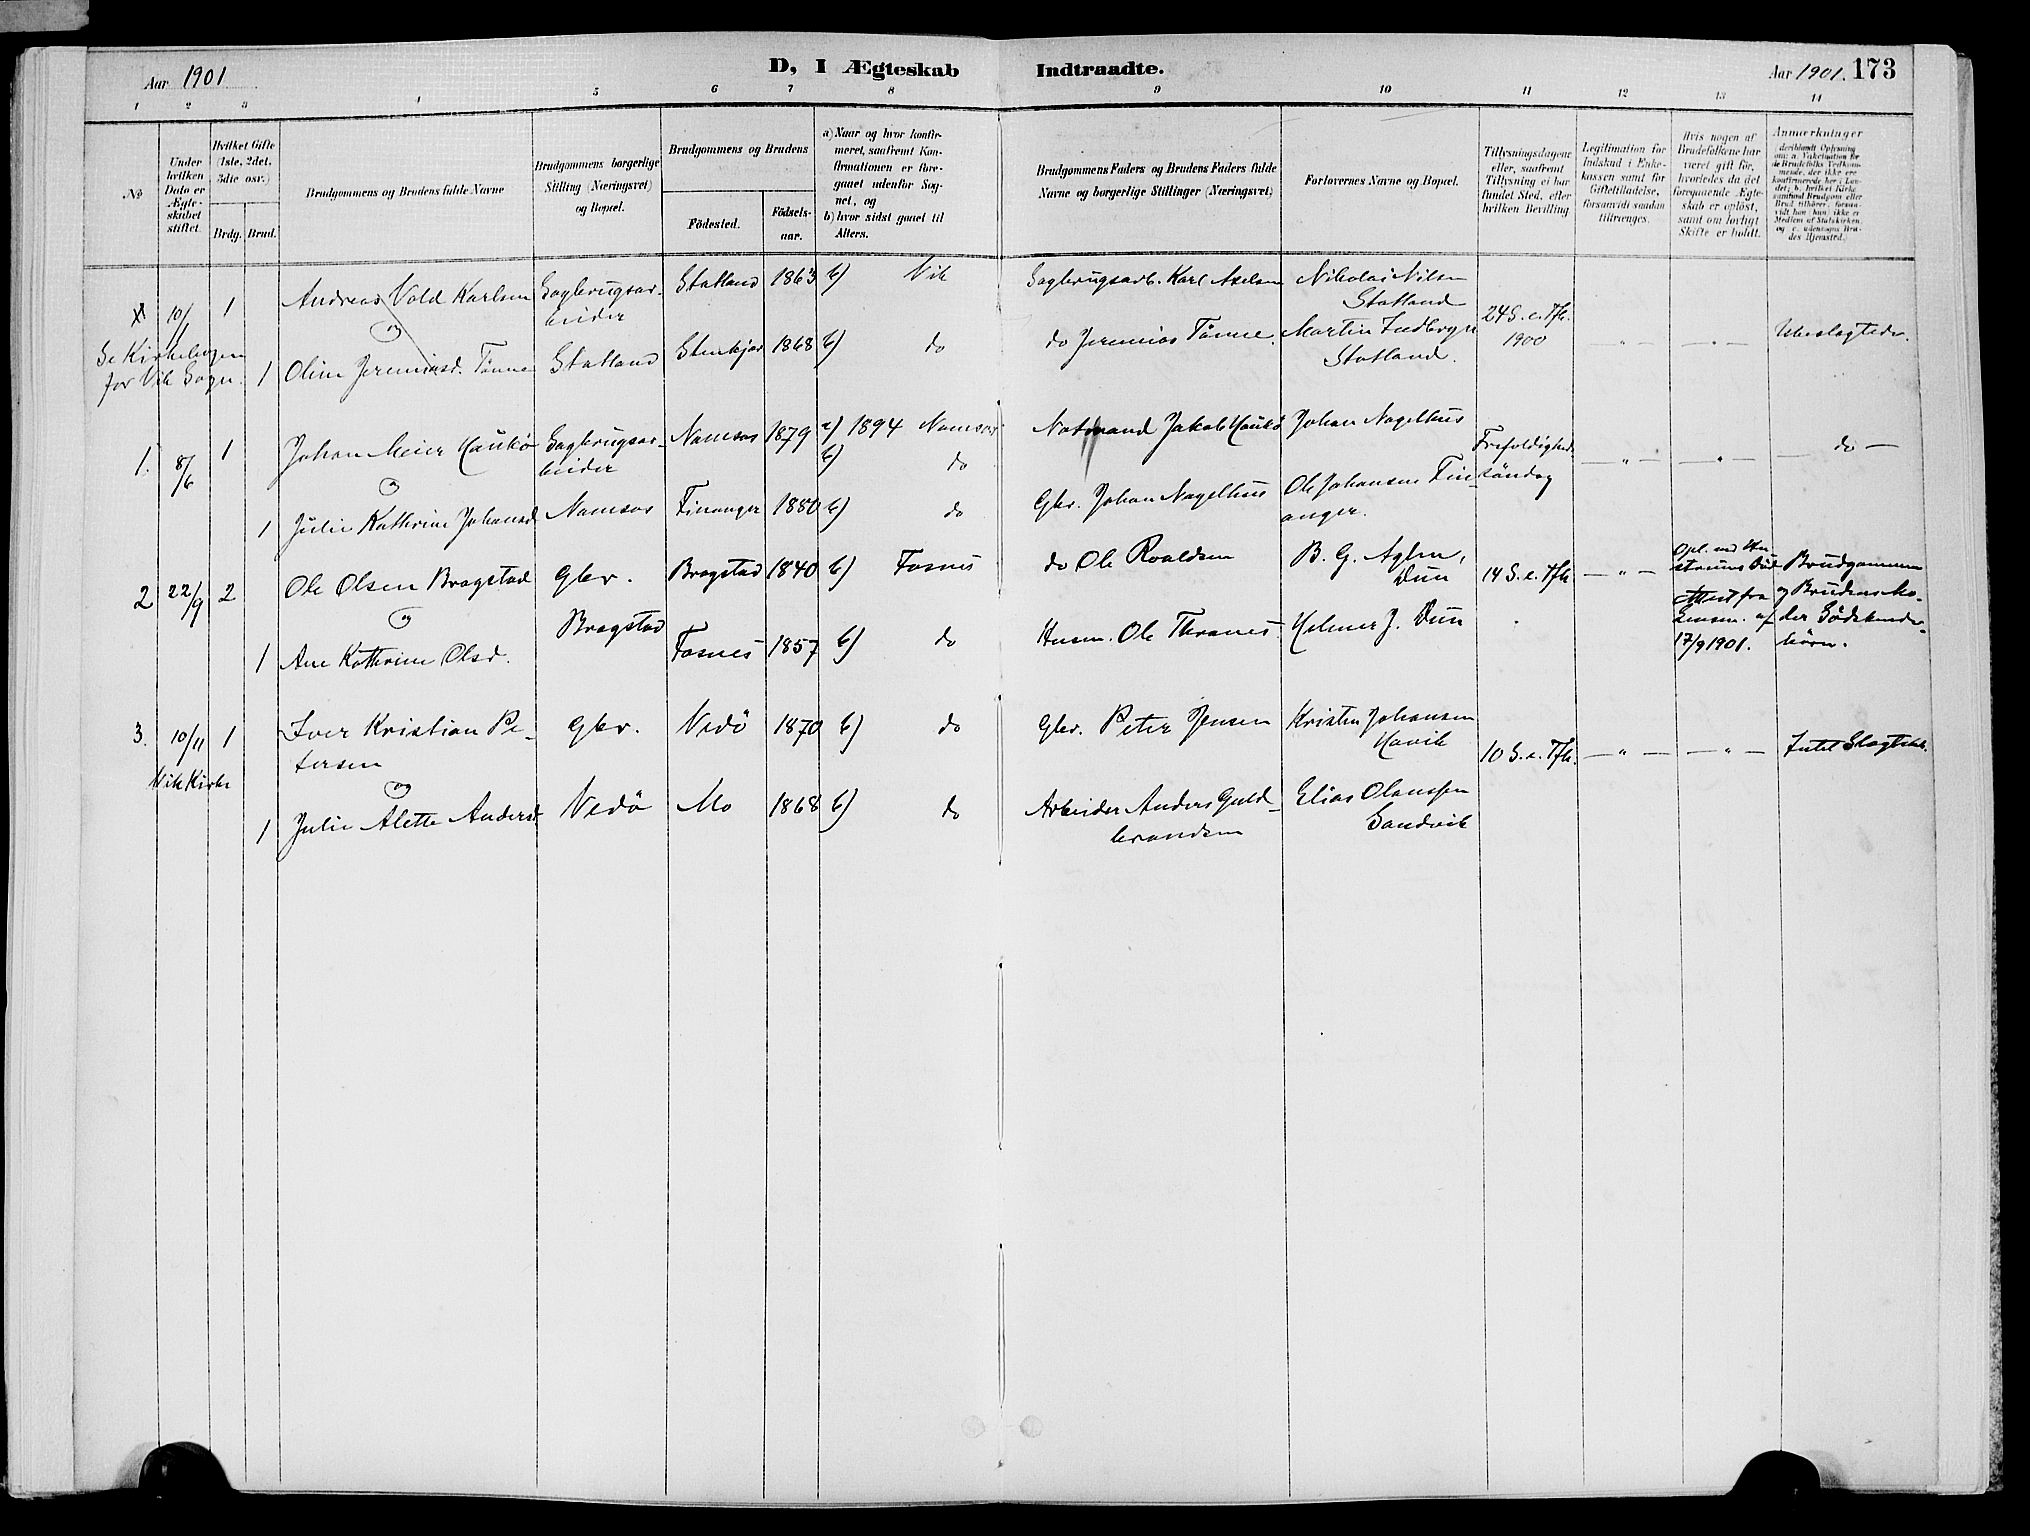 Aar 1901
D, I Ægteskab Indtraadte.
Aar 1901. 173
1 2 3 4 5 6 7 8 9 10 11 12 13 14
№
Under hvilken Dato er Ægteskabet stiftet.
Hvilket Gifte (1ste, 2det, 3die osv.)
Brdg. Brud.
Brudgommens og Brudens fulde Navne
Brudgommens borgerlige Stilling (Næringsvei) og Bopæl.
Brudgommens og Brudens
Födested.
Födsels-aar.
a) Naar og hvor konfirmeret, saafremt Konfirmationen er foregaaet udenfor Sognet, og
b) hvor sidst gaaet til Alters.
Brudgommens Faders og Brudens Faders fulde Navne og borgerlige Stillinger (Næringsvei)
Forlovernes Navne og Bopæl.
Tillysningsdagene eller, saafremt Tillysning ei har fundet Sted, efter hvilken Bevilling
Legitimation for Indskud i Enkekassen samt for Giftetilladelse, forsaavidt saadan tiltrænges.
Hvis nogen af Brudefolkene har været gift för, hvorledes da det foregaaende Ægteskab er oplöst, samt om lovligt Skifte er holdt.
Anmærkninger
10/1 1 Andreas Vold Karlsen Sagbrugsar- Statland 1863 b) Vik Sagbrugsarb. Karl Axelsen Nikolai Nilsen
beider Statland
Se Kirkebogen og 24 S. e. Tfh.
for Vik Sogn. 1 Oline Jeremiasd. Tønne Statland Stenkjær 1868 b) do do Jeremias Tønne. Martin Indbryn 1900 Ubeslægtede.
Statland.
1. 8/6 1 Johan Meier Haukø Sagbrugsar- Namsos 1879 a) 1894 Namsos Notmand Jakob Haukø Johan Nagelhus Trefoldigheds
beider b) do do
og
1 Julie Kathrine Johansd Namsos Finanger 1880 b) do Gbr. Johan Nagelhus Ole Johansen Fin- söndag
anger.
2 22/9 2 Ole Olsen Bragstad Gbr. Bragstad 1840 b) Fosnes do Ole Roaldsen B. G. Aglen, Dun 14 S. e. Tfh. Opl. ved Hu-
struens Död
Brudgommen
og Bragstad Attest fra og Brudens Mo-
1 Ane Kathrine Olsd. Fosnes 1857 b) do Husm. Ole Thranes Helmer J. Dun af der Södskende-
17/9 1901. börn.
3. 10/11 1 Iver Kristian Pe- Gbr. Vedö 1870 b) do Gbr. Peter Jensen Kristen Johansen
tersen Havik 10 S. e. Tfh. Intet Slægtsk.
Vik Kirke og
1 Julie Alette Andersd. Vedö Mo 1868 b) do Arbeider Anders Guld- Elias Olaussen
brandsen Sandvik